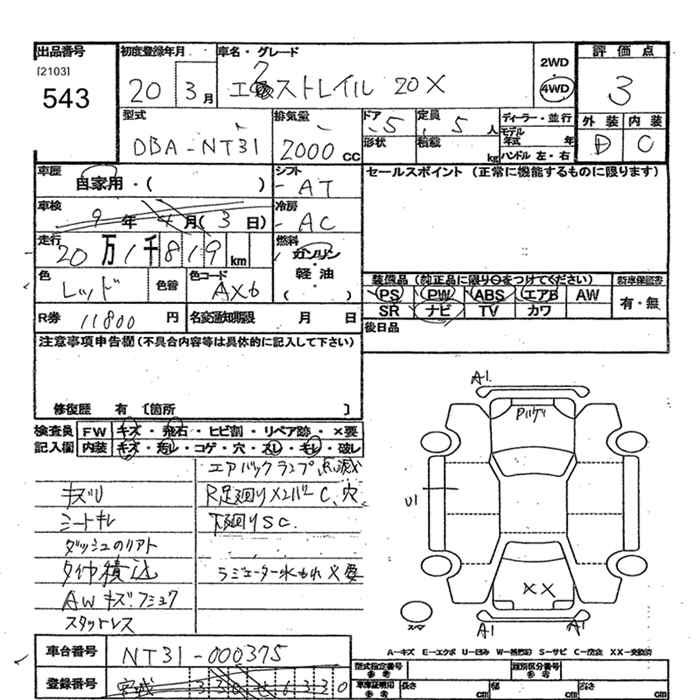 出品番号
[2103]
543
初度登録年月
20 3月
車名・グレード
エクストレイル 20X
2WD
4WD
評価点
3
外装 内装
D C
型式
DBA-NT31
排気量
2000 CC
ドア 5
形状
定員 5 人
積載 kg
ディーラー・並行
モデル年式 年
ハンドル 左・右
車歴
自家用・( )
シフト
AT
セールスポイント (正常に機能するものに限ります)
車検
9年 4月(3日)
冷房
AC
走行
20万1千819km
燃料
ガソリン・
軽油・
( )
色
レッド
色替
色コード
AX6
装備品 (純正品に限り○をつけてください)
新車保証書
PS PW ABS エアB AW
SR ナビ TV カワ
有・無
R券 11800 円
名変通知期限 月 日
後日品
注意事項申告欄 (不具合内容等は具体的に記入して下さい)
修復歴 有 〔箇所 〕
検査員
記入欄
FW キズ・飛石・ヒビ割・リペア跡・×要
内装 キズ・汚レ・コゲ・穴・スレ・キレ・破レ
エアバックランプ点滅
キズU
R足廻りメンバーC、穴
シートキレ
下廻りSC.
ダッシュのリアト
タイヤ積込
ラジエーター水もれ×要
AWキズ.フショク
スタットレス
A1
Pハゲ
U1
XX
スマ
A1 A1
A-キズ E-エクボ U-凹み W-補修跡 S-サビ C-腐食 XX-交換済
車台番号
NT31-000375
登録番号
宮城
型式指定番号
参考
類別区分番号
参考
車庫証明用
参考
長さ cm
幅 cm
高さ cm